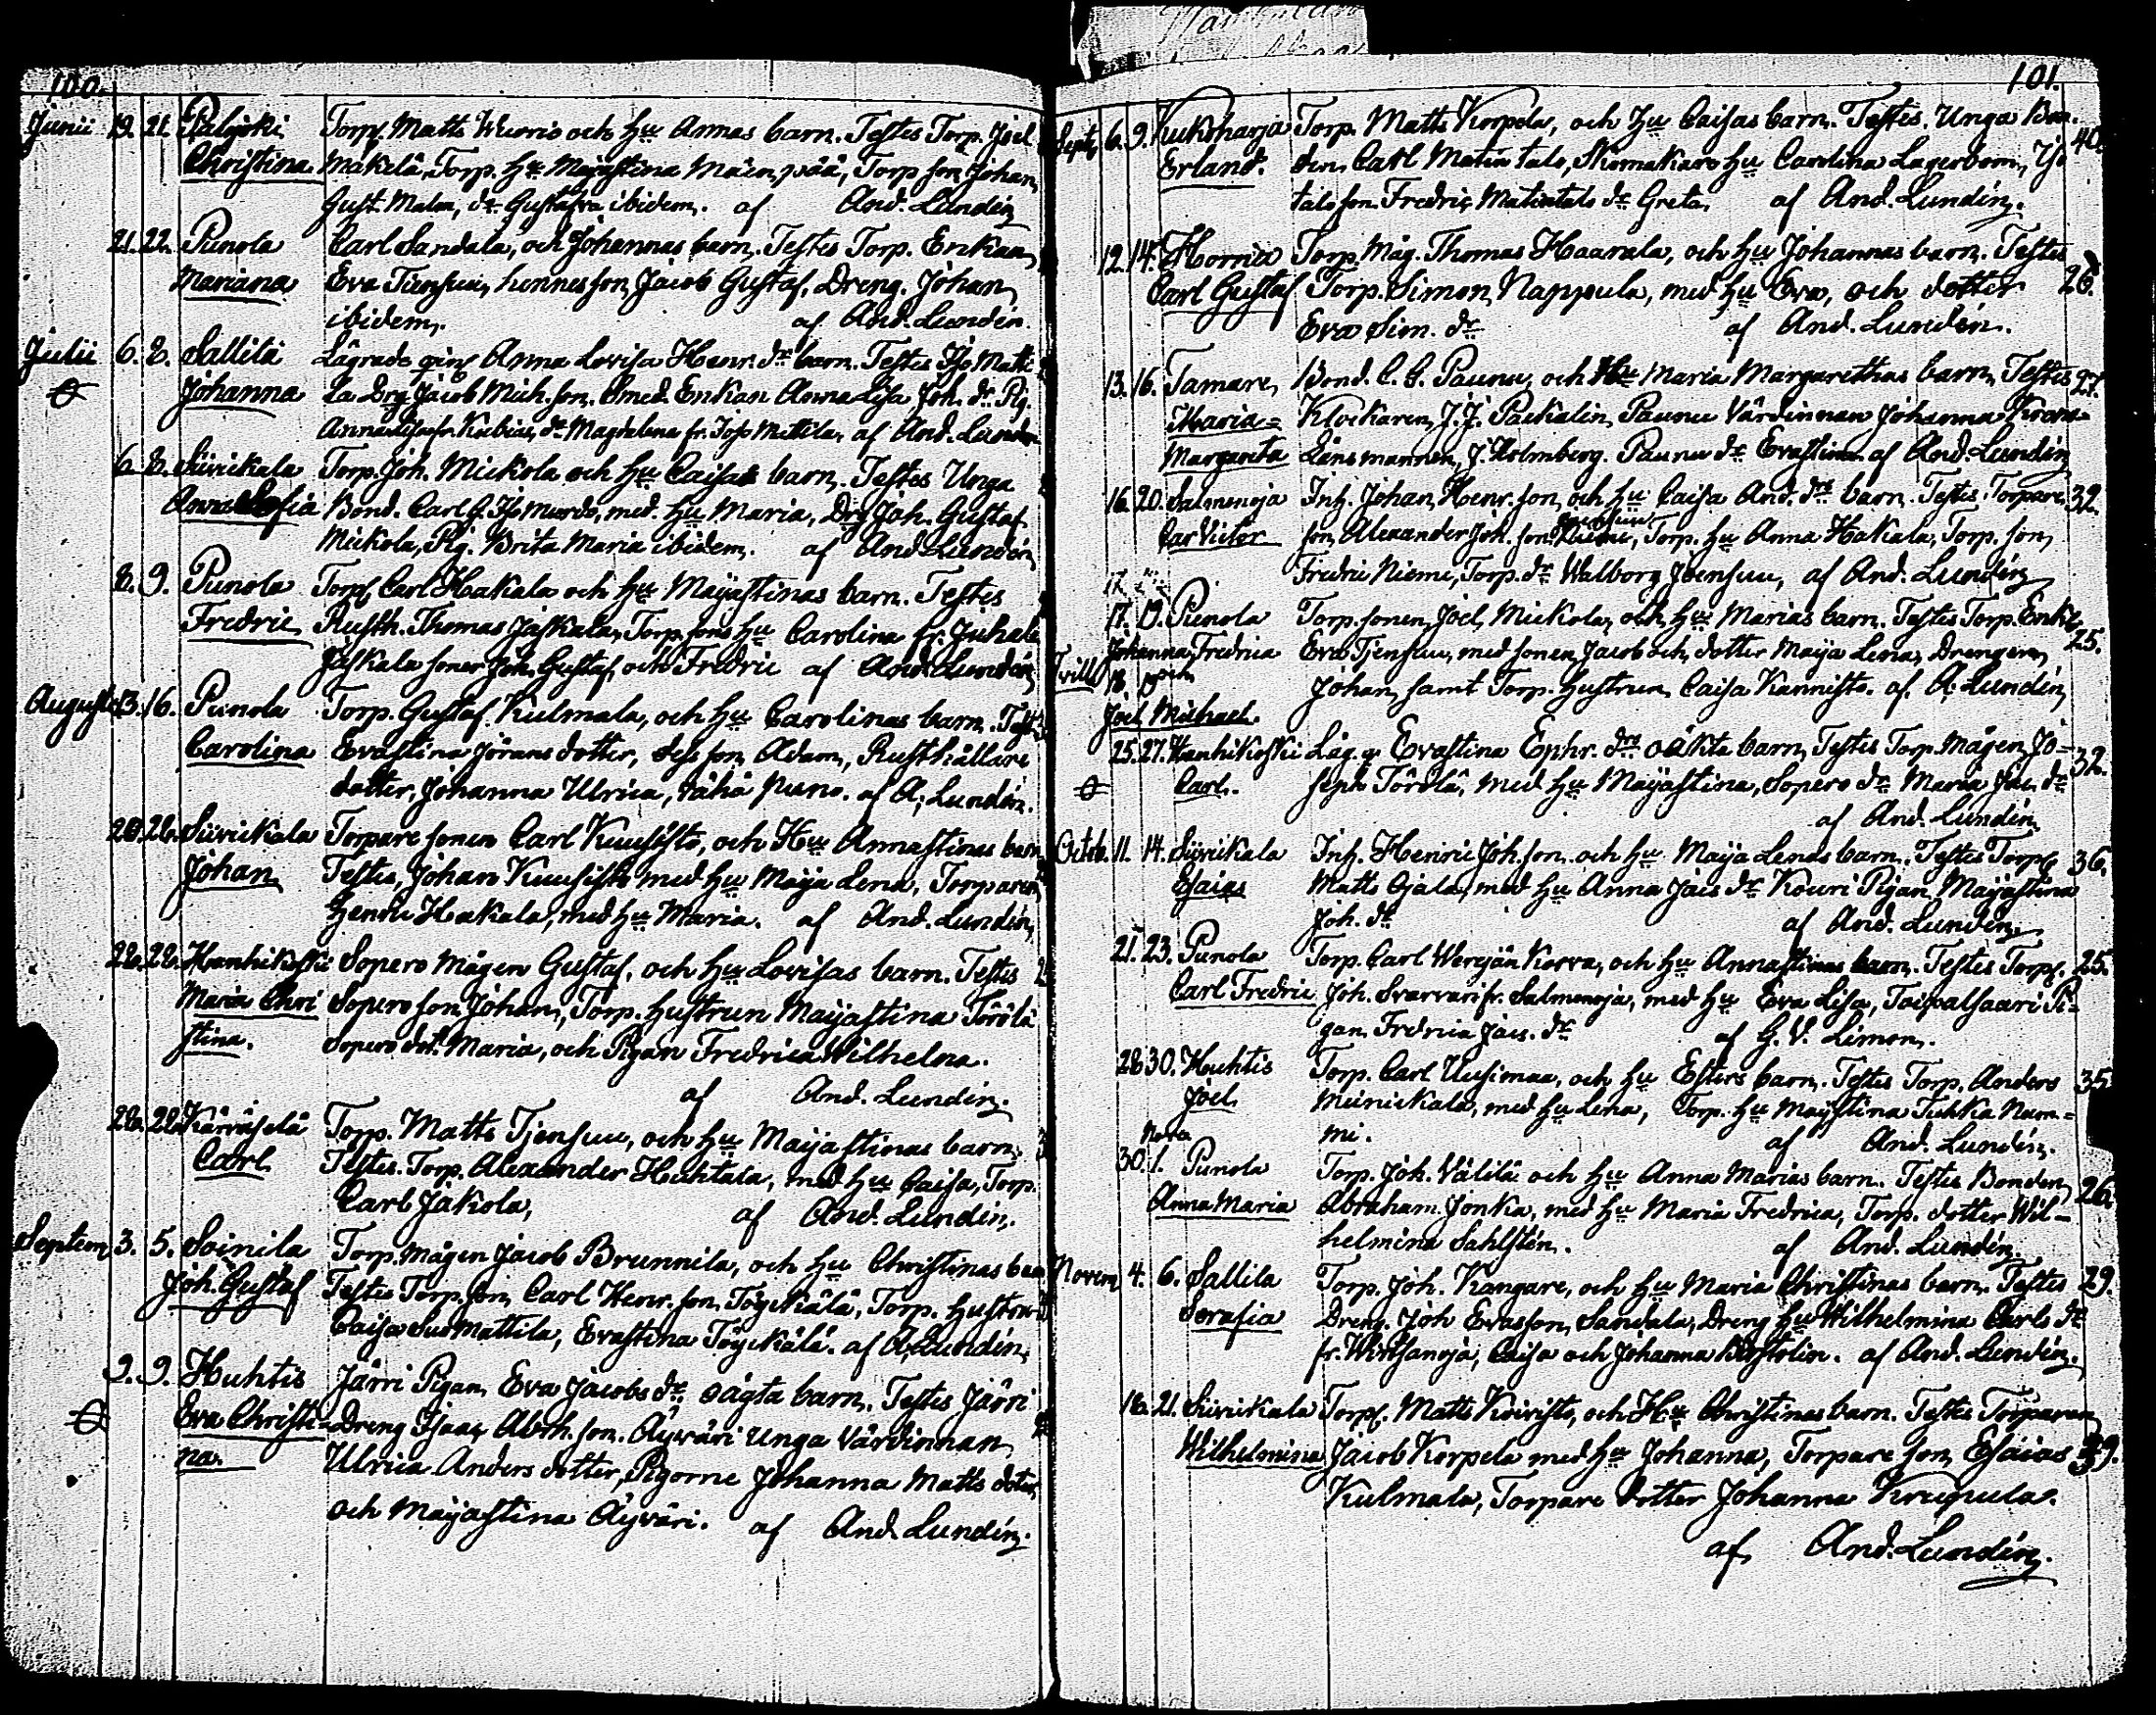 100.
Junii 19. 21. Palojoki Torp. Matts Wuorio och Hu Annas barn. Testes Torp. Joel
Christina Mäkelä, Torp. Hu Majastina Mäenpää, Torp. son Johan
Gust. Malm, dr Gustafva ibidem. af And. Lundén
21. 22. Punola Carl Sandala, och Johannas barn. Testes Torp. Enkan
Mariana Eva Tiensuu, hennes son Jacob Gustaf, Dreng. Johan
ibidem. af And. Lundén.
Julii 6. 8. Sallila Lägrade qins Anna Lovisa Henr. dr barn. Testes Iso Matti
Johanna la Drg Jacob Mich. son. Smed. Enkan Anna Lisa Joh. dr Pig.
Annalisa fr. Kubias, dr Magdalena fr. Iso Mattila, af And. Lundén
6. 8. Sürickala Torp. Joh. Mickola och Hu Caisas barn. Testes Unga
Anna Sofia Bond. Carl G. Iso Murdo, med Hu Maria, Drg Joh. Gustaf
Mickola, Pig. Brita Maria ibidem. af And. Lundén
8. 9. Punola Torp. Carl Hakala och Hu Majastinas barn. Testes
Fredric Rusth. Thomas Jaskala, Torp. sons Hu Carolina fr. Juhala
Jaskala soner Joh. Gustaf, och Fredric af And. Lundén
Augusti 13. 16. Punola Torp. Gustaf Kulmala, och Hu Carolinas barn. Test.
Carolina Evastina Jörans dotter, dess son Adam, Rusthållare
dotter, Johanna Ulrica, Vähä Puno. af A. Lundén.
20. 26. Sürickala Torpare sonen Carl Kuusisto, och Hu Annastinas barn
Johan Testes, Johan Kuusisto med Hu Maja Lena, Torparen
Henric Hakala, med Hu Maria. af And. Lundén
28. 28. Hanhikoski Sopero mågen Gustaf, och Hu Lovisas barn. Testes
Maria Chri Sopero son Johan, Torp. Hustrun Maijastina Törölä
stina. Sopero dotr Maria, och Pigan Fredrica Wilhelma.
af And. Lundén.
28. 28. Kärväselä Torp. Matts Tjensuu, och Hu Maijastinas barn.
Carl Testes. Torp. Alexander Huhtala, med Hu Caisa, Torp.
Carl Jakola, af And. Lundén.
Septem 3. 5. Soinila Torp. Mågen Jacob Brunnila, och Hu Christinas barn
Joh. Gustaf Testes Torp. son Carl Henr. son Töyckälä, Torp. hustrun
Caisa Suo Mattila, Evastina Töyckälä. af A. Lundén.
9. 9. Huhtis Järri Pigan Eva Jacobs dr oägta barn. Testes Järri
Eva Christi= Dreng Isaac Abrh. son. Äyväri unga Värdinnan
na. Ulrica Anders dotter, Pigorne Johanna Matts doter,
och Majastina Äyväri. af And. Lundén.
101.
Sept. 6. 9. Kukonharja Torp. Matts Korpela, och Hu Caisas barn. Testes, Unga Bon= 40.
Erland. den Carl Matin talo, Skomakare Hu Carolina Lagerbom, Iso
talo son Fredric, Matintalo dr Greta. af And. Lundén.
12. 14. Hornia Torp. Måg. Thomas Haanala, och Hu Johannas barn. Testes 26.
Carl Gustaf Torp. Simon Nappula, med Hu Eva, och dotter
Eva Sim. dr af And. Lundén.
13. 16. Tamare Bond. C. G. Paunu, och Hu Maria Margarethas barn, Testes 27.
Maria= Klockaren J. J. Packalin, Paunu Värdinnan Johanna Krons=
Margareta Länsmannen, J. Holmberg. Paunu dr Evastina. af And. Lundén
16. 20. Salmenoja Inh. Johan Henr. son, och Hu Caisa And. drs barn. Testes. Torpare 32.
Car Victor son Alexander Joh. son, Torp. Hu Anna Hakala, Torp. son
Fredric Niemi, Torp. dr Walborg Joensuu, af And. Lundén
17. 19. Punola Torp. sonen, Joel Mickola, och Hu Marias barn. Testes Torp. Enk. 25.
Johanna Fredrica Eva Tjensuu, med sonen Jacob och dotter Maja Lena, Drengen
Trill. 18. och Johan, samt Torp. Hustrun Caisa Kannisto. af A. Lundén
Joel Michael.
25. 27. Hanhikoski Läg. q. Evastina Ephr. drs oäkta barn, Testes Torp. Mågen Jo= 32.
Carl. seph Törölä, med Hu Majastina, Sopero dr Maria Jac. dr
af And. Lundén
Octob. 11. 14. Syrickala Inh. Henric Joh. son. och Hu Maija Lenas barn. Testes Torp. 36.
Esaias Matts Ojala, med Hu Anna Jacs dr Kouri Pigan Majastina
Joh. dr af And. Lundén.
21. 23. Punola Torp. Carl Werejän Korva, och Hu Annastinas barn. Testes Torp. 25.
Carl Fredric Joh. Svarvari fr. Salmenoja, med Hu Eva Lisa, Taipalsaari Pi=
gan Fredrica Jacs. dr af G. V. Limon.
28 30. Huhtis Torp. Carl Uusimaa, och Hu Esters barn. Testes Torp. Anders 35
Joel Meinickala, med Hu Lena, Torp. Hu Majstina Tuhka Num=
mi. af And. Lundén.
Nov.
30. 1. Punola Torp. Joh. Välilä och Hu Anna Marias barn. Testes Bonden 26.
Anna Maria Abraham Jonka, med Hu Maria Fredrica, Torp. dotter Wil=
helmina Sahlstén. af And. Lundén.
Novem 4. 6. Sallila Torp. Joh. Kangare, och Hu Maria Christinas barn. Testes 29.
Serafia Dreng. Joh Evasson, Sandala, Dreng Hu Wilhelmina Carls dr
fr. Winsanoja, Caisa och Johanna Bostolin. af And. Lundén.
18. 21. Sürickala Torp. Matts Koivisto, och Hu Christinas barn. Testes Torparen
Wilhelmina Jacob Korpela med Hu Johanna, Torpare son Esaias 39.
Kulmala, Torpare dotter Johanna Krupula.
af And. Lundén.